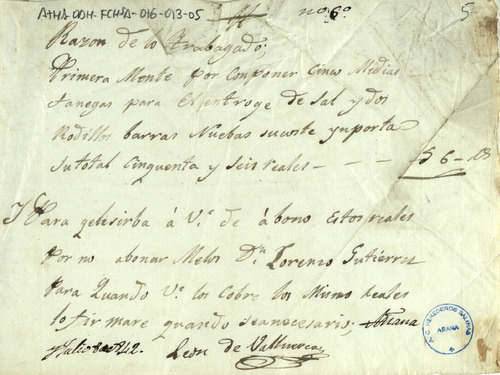 ATHA-DDH-FCHSA-016-013-05
nº 6º
5
Razon de lo Trabagado;
Primera Mente por Conponer Cinco Medias
fanegas para el entroge de Sal y dos
Rodillos barras Nuebas su coste ynporta
su total Cinquenta y seis reales - - - 56 - rs
Y Para qe le sirba á V.e de ábono Estos reales
Por no abonar Melos D.n Lorenzo Gutierrez
Para Quando V.e los Cobre los Mismo Reales
lo fir mare quando sea necesario; Añana
y Julio 8 de 42. Leon de Valluerca
A.C. HEREDEROS SALINAS
AÑANA